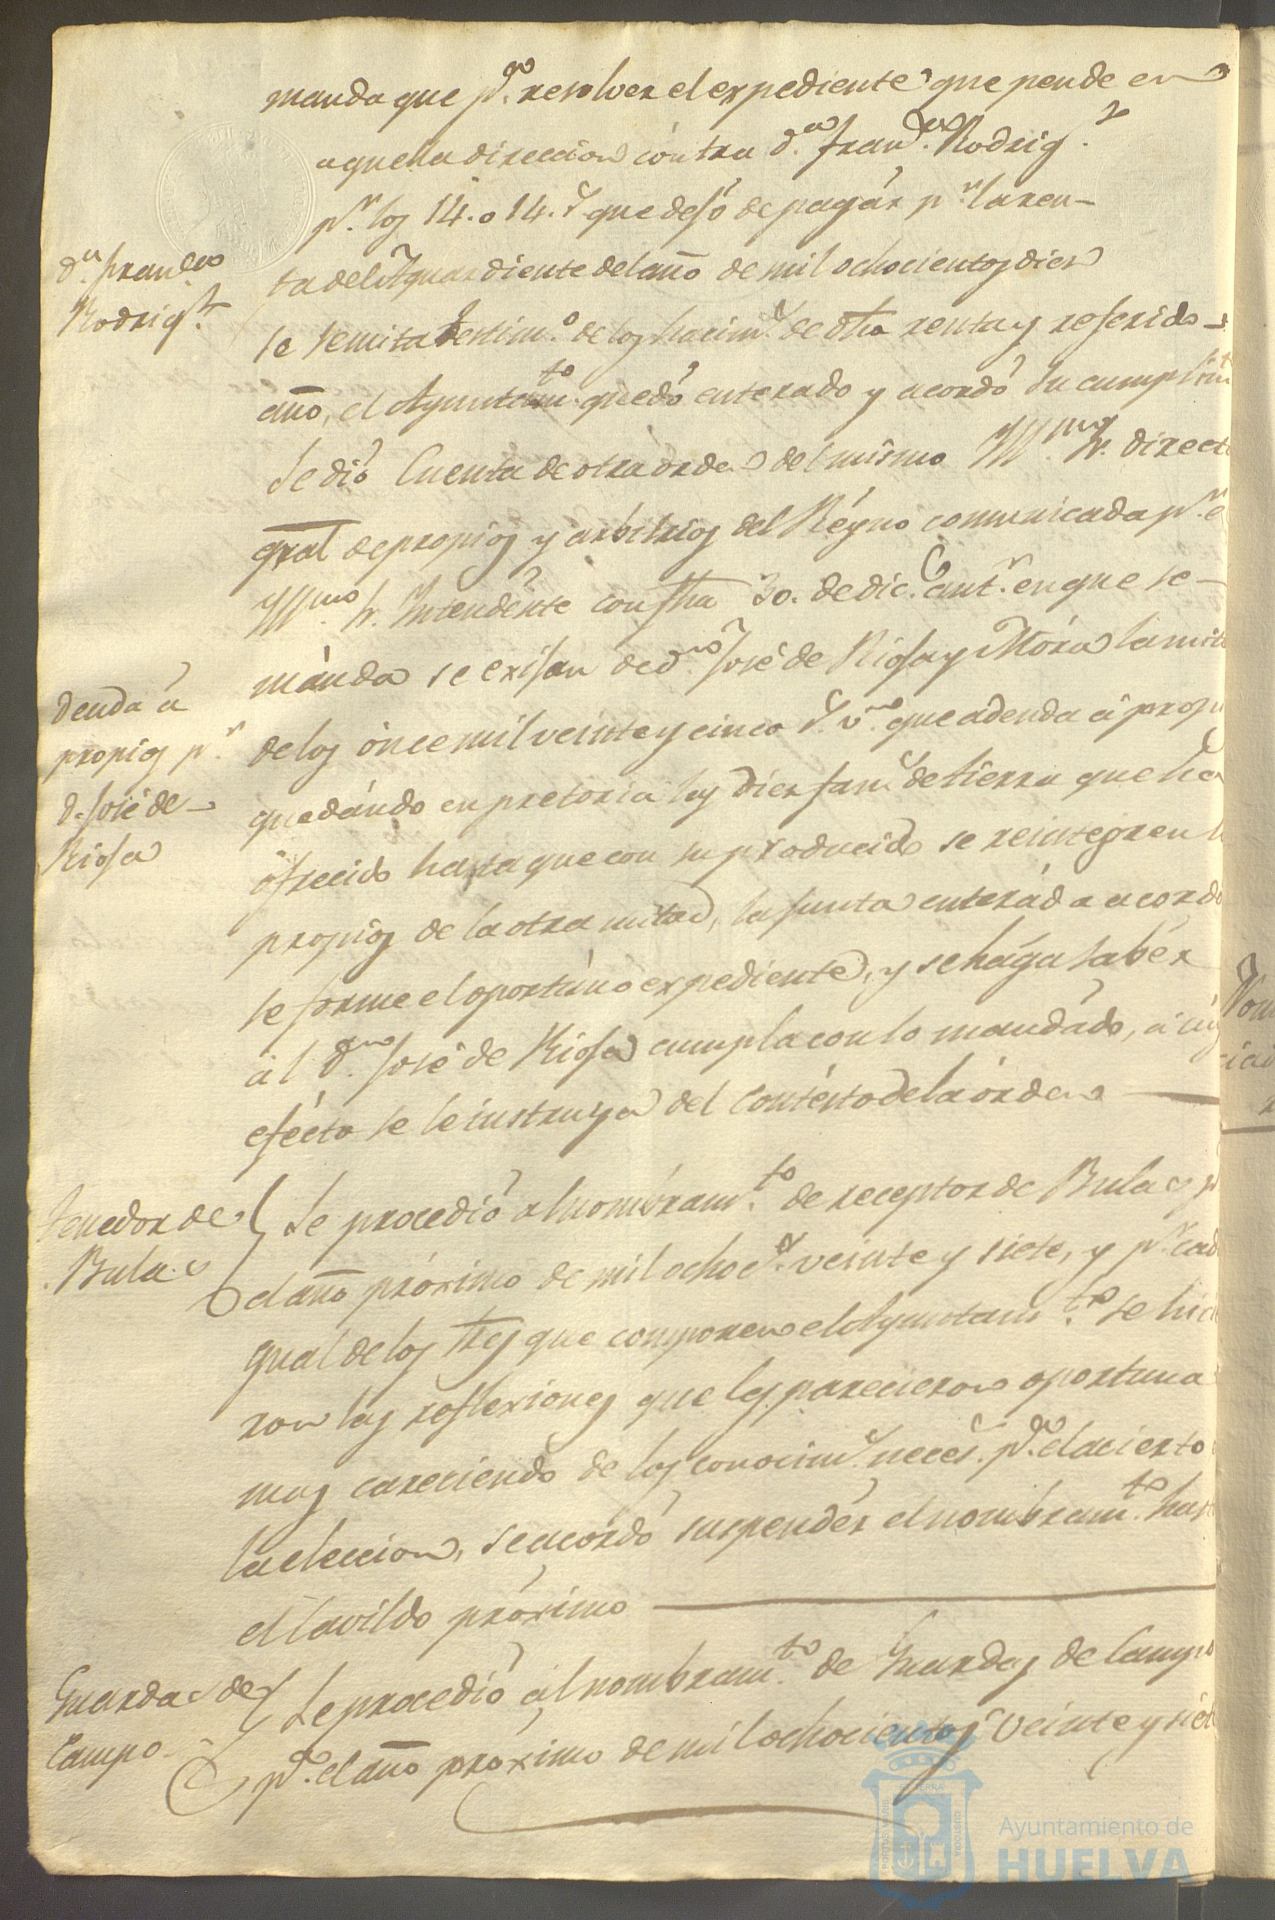 manda que p.ª resolver el expediente que pende en
aquella direccion contra d.n Fran.co Rodrig.z
p.r los 14. o 14. r.s que dejó de pagár p.r la ren-
d.n Fran.co
Rodrig.z
ta del Aguardiente del año de mil ochocientos diez
se remita testim.o de los hacim.s de dha renta y referido
año, el Ayuntam.to quedó enterado y acordó su cumplim
Se dió Cuenta de otra orden del mismo Yll.mo Sr. direct
gral de propios y arbitrios del Réyno comunicada p.r e
Yll.mo Sr. Intendénte con fha 30. de dic.e ant.r en que se
mánda se exijan de d.n José de Rioja y Móra la mit
deuda á
propios p.r
d. José de
Rioja
de los ónce mil veinte y cinco r.s v.n que adeuda á propi
quedándo en pretoria las diez fan.s de tierra que ha
ofrecido hasta que con su producido se reintegren l
propios de la otra mitad, la junta enteráda acordo
se forme el oportúno expediente, y se hága sabér
ál d.n José de Rioja cumpla con lo mandádo, á cuy
efécto se le instruya del contésto de la órden
Tenedor de
Bulas
Se procedió al nombram.to de receptor de Bulas p
el año próximo de mil ochoc.s veinte y siete, y p.r cad
qual de los Sres que componen el Ayuntam.to se hici
ron las reflexiones que les parecieron oportuna
mas careciendo de los conocim.s neces.s p.ª el acierto
la eleccion, se acordó suspendér el nombram.to hast
el Cavildo próximo
Guardas de
Campo
Se procedió ál nombram.to de Guardas de Campo
p.ª el año próximo de mil ochocientos veinte y siet
Ayuntamiento de
HUELVA